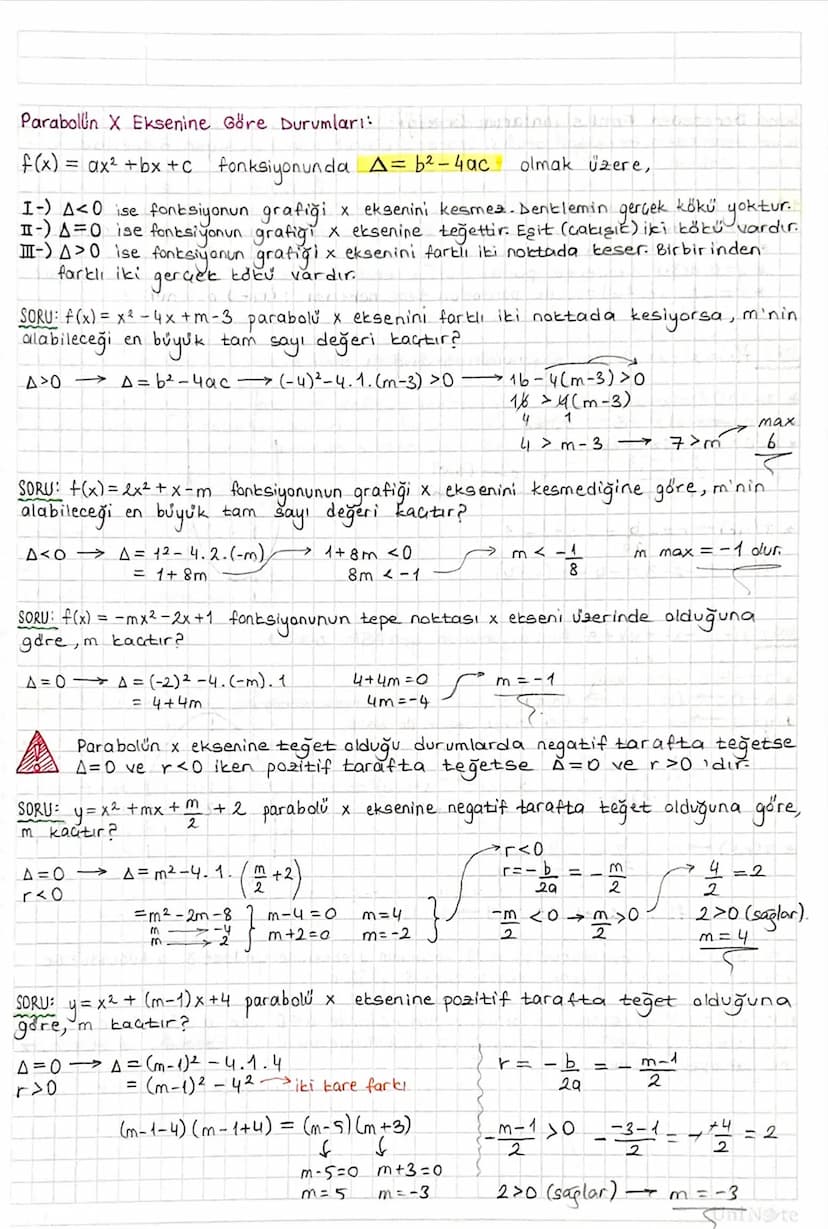 Parabolün X Eksenine Göre Durumları:
f(x) = ax² + bx + c fonksiyonunda Δ = b² - 4ac olmak üzere,
I-) Δ<0 ise fonksiyonun grafiği x eksenini kesmez. Denklemin gerçek kökü yoktur.
II-) Δ=0 ise fonksiyonun grafiği x eksenine teğettir. Eşit (çakışık) iki kökü vardır.
III-) Δ>0 ise fonksiyonun grafiği x eksenini farklı iki noktada keser. Birbirinden
farklı iki gerçek kökü vardır.
SORU: f(x) = x² - 4x + m - 3 parabolü x eksenini farklı iki noktada kesiyorsa, m'nin
alabileceği en büyük tam sayı değeri kaçtır?
Δ>0 → Δ = b² - 4ac → (-4)² - 4.1.(m-3) > 0 → 16 - 4(m-3) > 0
16 > 4(m-3)
4 1
4 > m-3 → 7 > m → max 6
SORU: f(x) = 2x² + x - m fonksiyonunun grafiği x eksenini kesmediğine göre, m'nin
alabileceği en büyük tam sayı değeri kaçtır?
Δ<0 → Δ = 1² - 4.2.(-m) → 1 + 8m < 0 → m < -1/8 m max = -1 dur.
= 1 + 8m 8m < -1
SORU: f(x) = -mx² - 2x + 1 fonksiyonunun tepe noktası x ekseni üzerinde olduğuna
göre, m kaçtır?
Δ=0 → Δ = (-2)² - 4.(-m).1 4 + 4m = 0 → m = -1
= 4 + 4m 4m = -4
! Parabolün x eksenine teğet olduğu durumlarda negatif tarafta teğetse
Δ=0 ve r<0 iken pozitif tarafta teğetse Δ=0 ve r>0 'dır.
SORU: y = x² + mx + m/2 + 2 parabolü x eksenine negatif tarafta teğet olduğuna göre,
m kaçtır?
Δ=0 → Δ = m² - 4.1.(m/2 + 2)
r<0
= m² - 2m - 8 } m-4=0 m=4 }
m → -4
m → 2 } m+2=0 m=-2 }
→ r<0
r = -b/2a = -m/2
-m/2 < 0 → m/2 > 0
→ 4/2 = 2
2>0 (sağlar).
m = 4
SORU: y = x² + (m-1)x + 4 parabolü x eksenine pozitif tarafta teğet olduğuna
göre, m kaçtır?
Δ=0 → Δ = (m-1)² - 4.1.4
r>0 = (m-1)² - 4² → iki kare farkı
(m-1-4)(m-1+4) = (m-5)(m+3)
m-5=0 m+3=0
m=5 m=-3
r = -b/2a = -m-1/2
-m-1/2 > 0 - -3-1/2 = → +4/2 = 2
2>0 (sağlar) → m = -3
UniNote